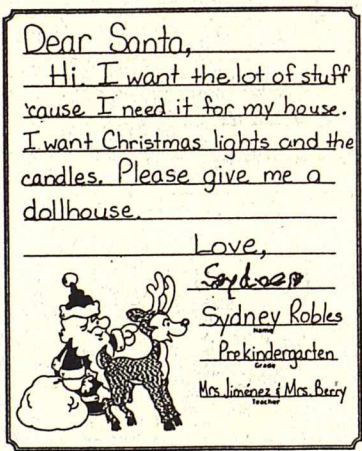 Dear Santa,
Hi. I want the lot of stuff
'cause I need it for my house.
I want Christmas lights and the
candles. Please give me a
dollhouse.
Love,
Sydney Robles
Name
Prekindergarten
Grade
Mrs. Jiménez & Mrs. Berry
Teacher